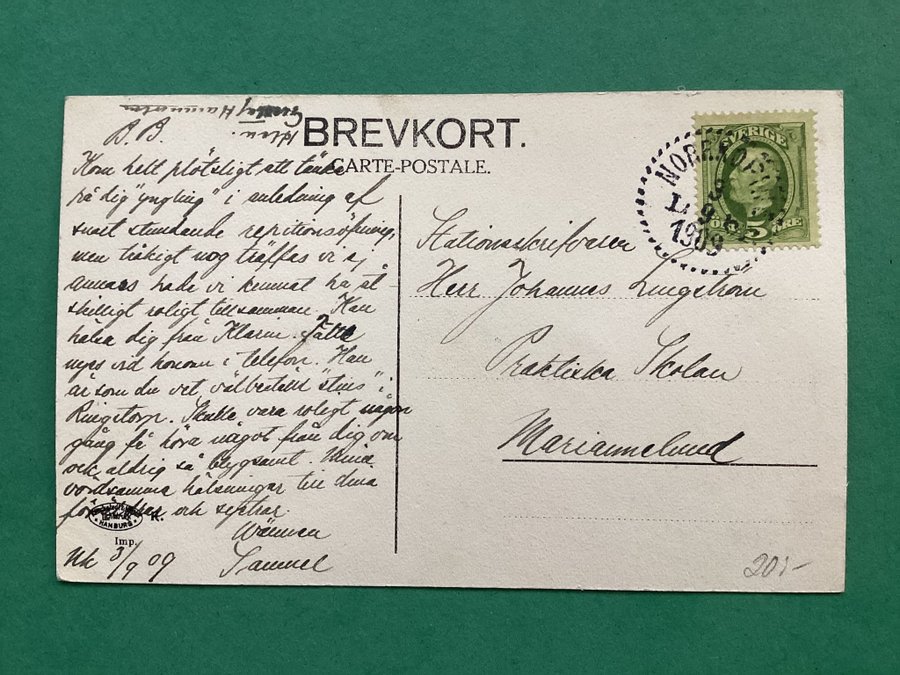 BREVKORT.
CARTE-POSTALE.
B.B.
Kom helt plötsligt att tänka
på dig "yngling" i anledning af
snart stundande repitionsöfning,
men tråkigt nog träffas vi ej
annars hade vi kunnat ha åt-
skilligt roligt tillsamman. Kan
hälsa dig från Klarin. Talte
nyss vid honom i telefon. Han
är som du vet, välbeställd "stins" i
Ringstorp. Skulle vara roligt någon
gång få höra något från dig om
ock aldrig så blygsamt. Mina
vördsamma hälsningar till dina
och systrar.
Wännen
Samuel
Nk 3/9 09
HAMBURG
K.
Imp.
SVERIGE
5 ÖRE
3
9
1909
Stationsskrifvaren
Herr Johannes Ljungström
Praktiska Skolan
Mariannelund
20:-